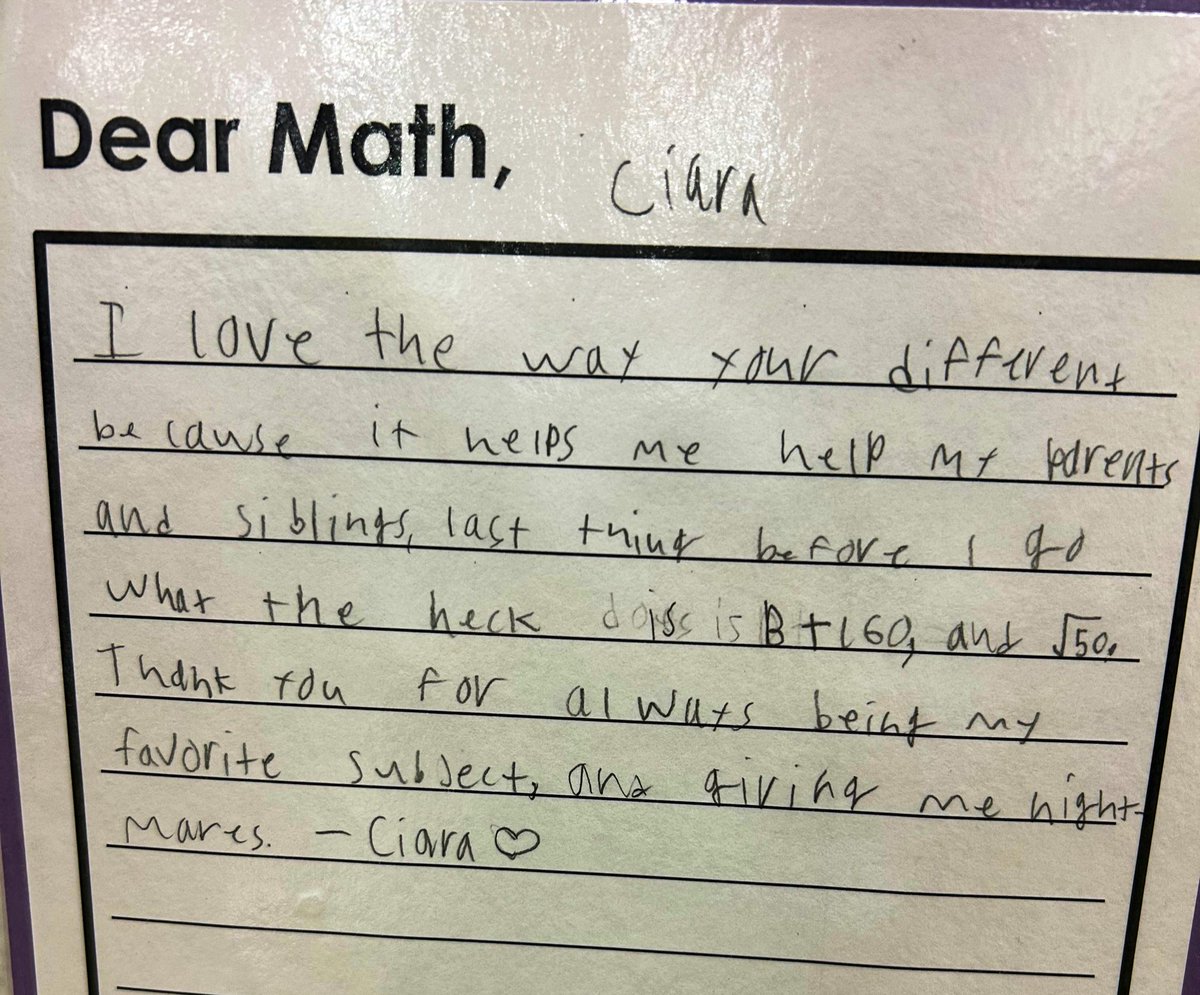 Dear Math, Ciara
I love the way your different
because it helps me help my parents
and siblings, last thing before I go
what the heck is B+160, and √50.
Thank you for always being my
favorite subject, and giving me night-
mares. – Ciara ♡